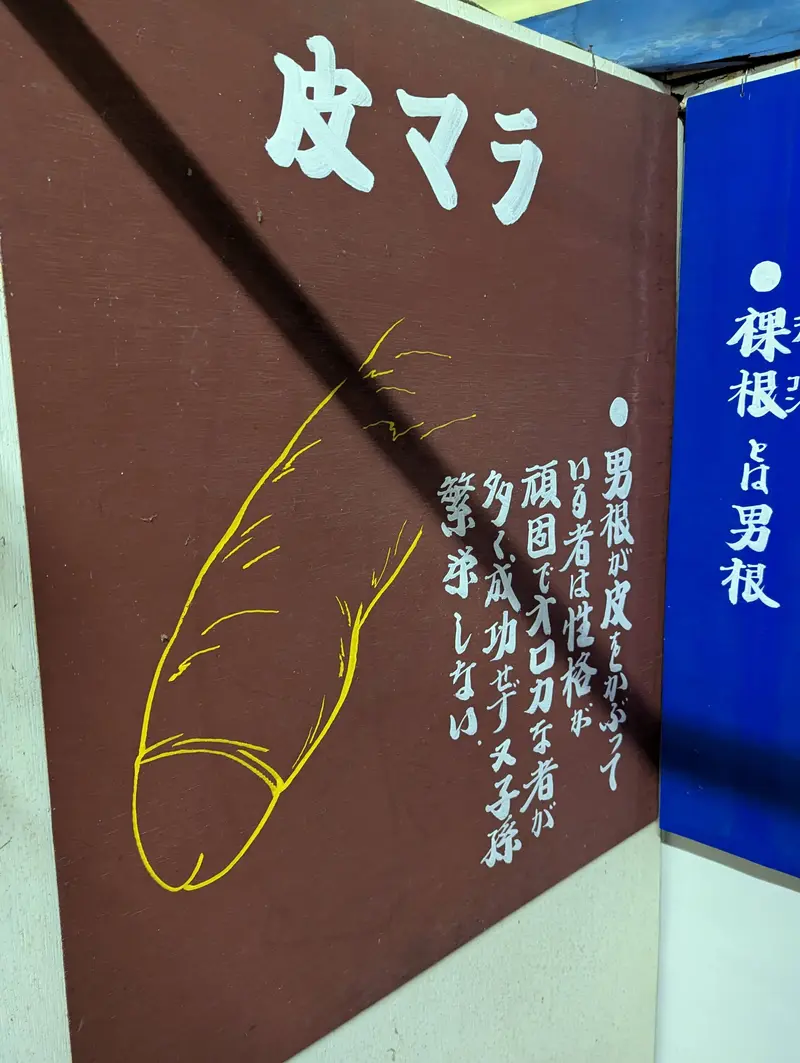 皮マラ
●男根が皮をかぶって
いる者は性格が
頑固でオロカな者が
多く、成功せずヌ子孫
繁栄しない。
●裸根とは男根